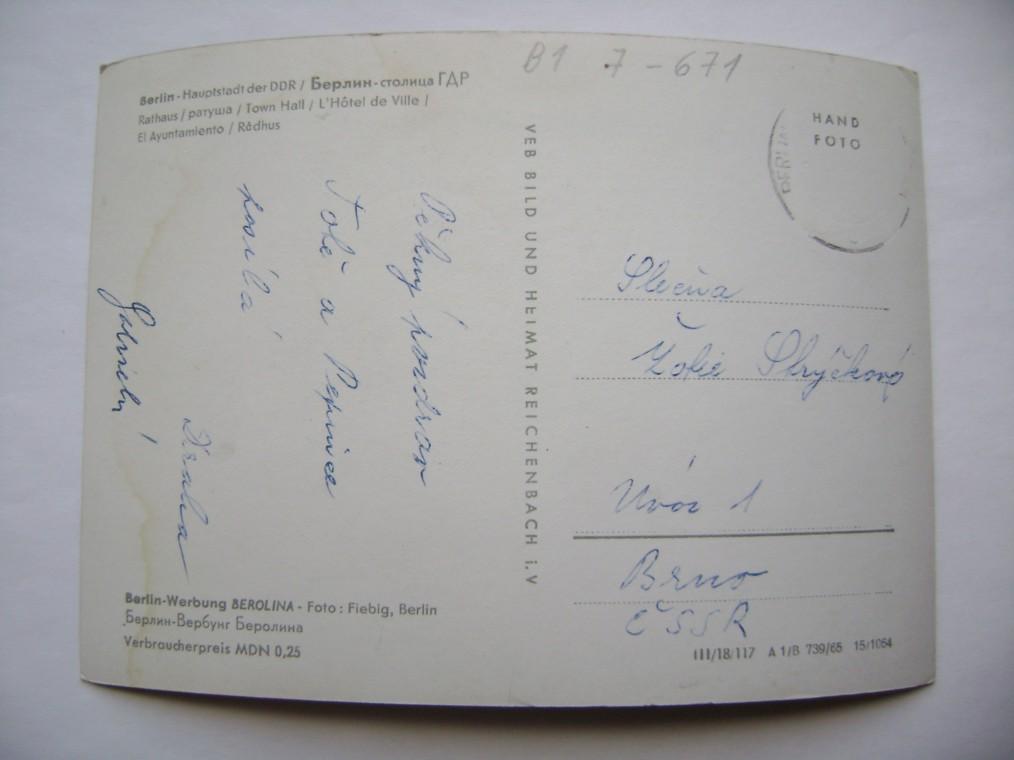 B1 7 - 671
Berlin - Hauptstadt der DDR / Берлин - столица ГДР
Rathaus / ратуша / Town Hall / L'Hôtel de Ville /
El Ayuntamiento / Rådhus
HAND
FOTO
BERLIN
VEB BILD UND HEIMAT REICHENBACH i. V
Pěkný pozdrav
a Pepince
posílá
Slečna
Žofie Strýčková
Úvoz 1
Brno
ČSSR
Berlin-Werbung BEROLINA - Foto: Fiebig, Berlin
Берлин-Вербунг Беролина
Verbraucherpreis MDN 0,25
III/18/117 A 1/B 739/65 15/1064